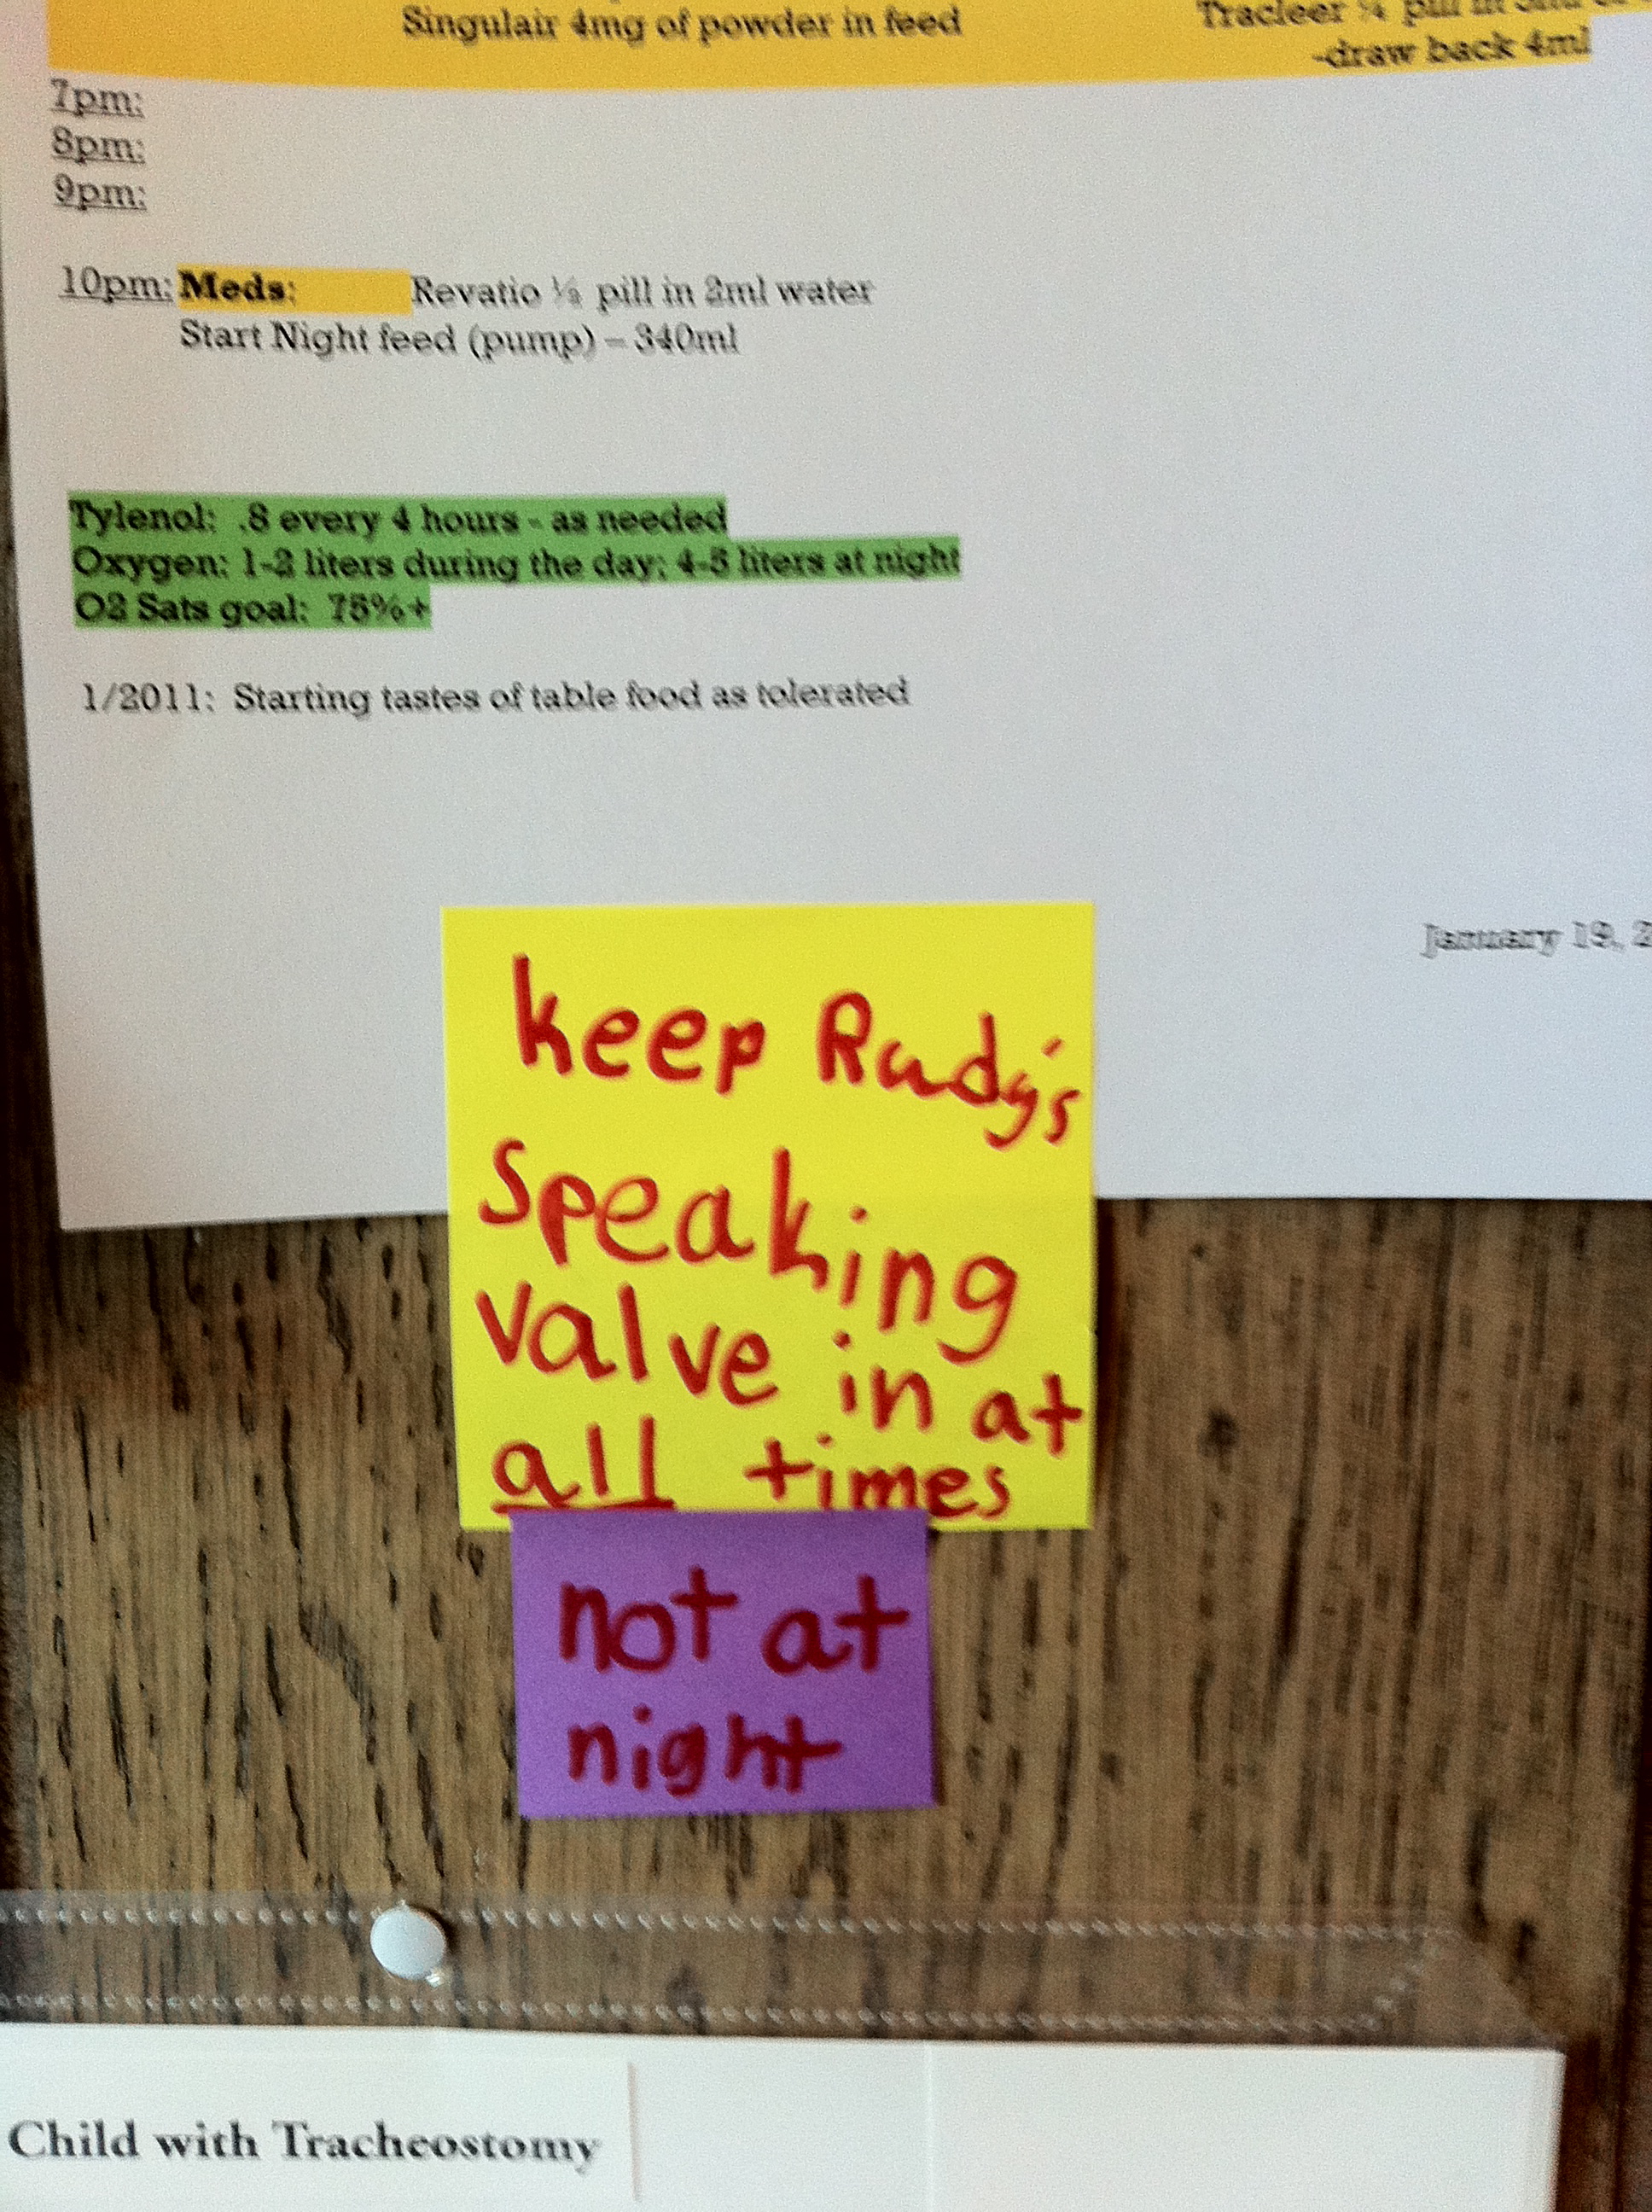 Singulair 4mg of powder in feed
Tracleer ¼ pill in
-draw back 4ml
7pm:
8pm:
9pm:
10pm: Meds: Revatio ½ pill in 2ml water
Start Night feed (pump) – 340ml
Tylenol: .8 every 4 hours - as needed
Oxygen: 1-2 liters during the day; 4-5 liters at night
O2 Sats goal: 75%+
1/2011: Starting tastes of table food as tolerated
January 19,
keep Rudy's
speaking
valve in at
all times
not at
night
Child with Tracheostomy